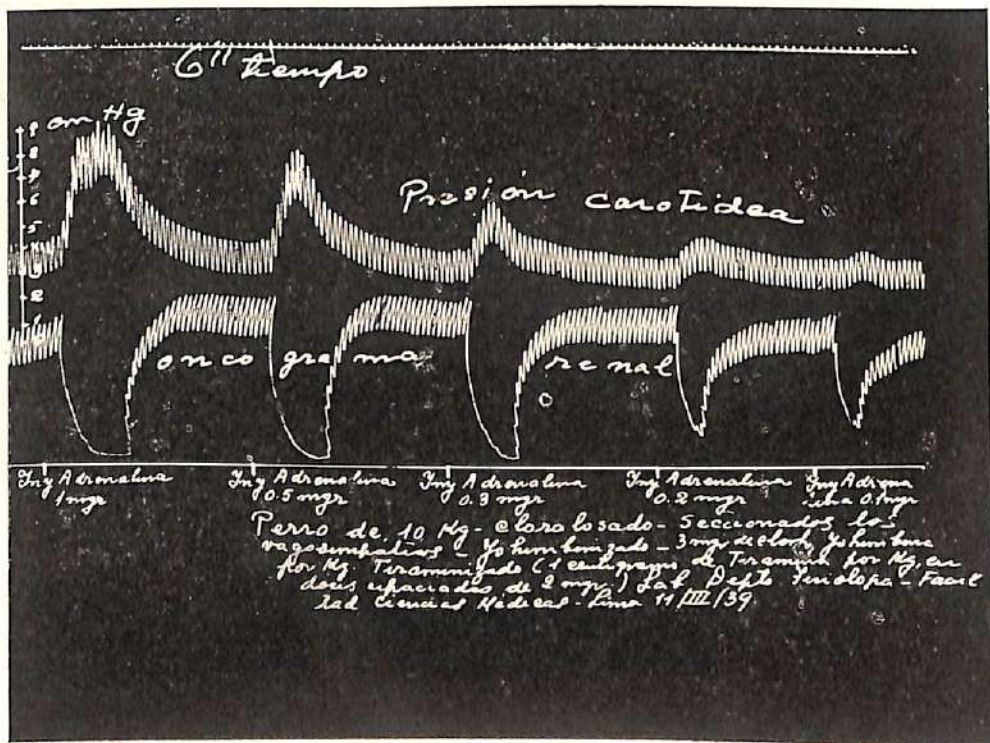 6" tiempo
cm Hg
9
8
7
6
5
4
3
2
1
0
Presión carotidea
oncograma renal
Iny Adrenalina
1 mgr
Iny Adrenalina
0.5 mgr
Iny Adrenalina
0.3 mgr
Iny Adrenalina
0.2 mgr
Iny Adrena
lina 0.1 mgr
Perro de 10 Kg - cloralosado - Seccionados los
vagosimpáticos - Yohimbinizado - 3 mgr de clorh Yohimbina
por Kg. Tiraminizado (1 centigramo de Tiramina por Kg, en
dosis espaciadas de 2 mgr.) Lab Depto Fisiología - Facul
tad Ciencias Médicas - Lima 11/III/39